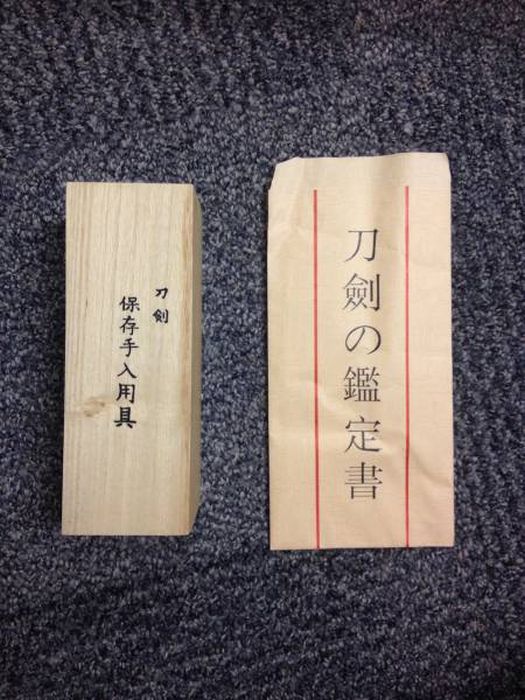 刀剣
保存手入用具
刀劍の鑑定書